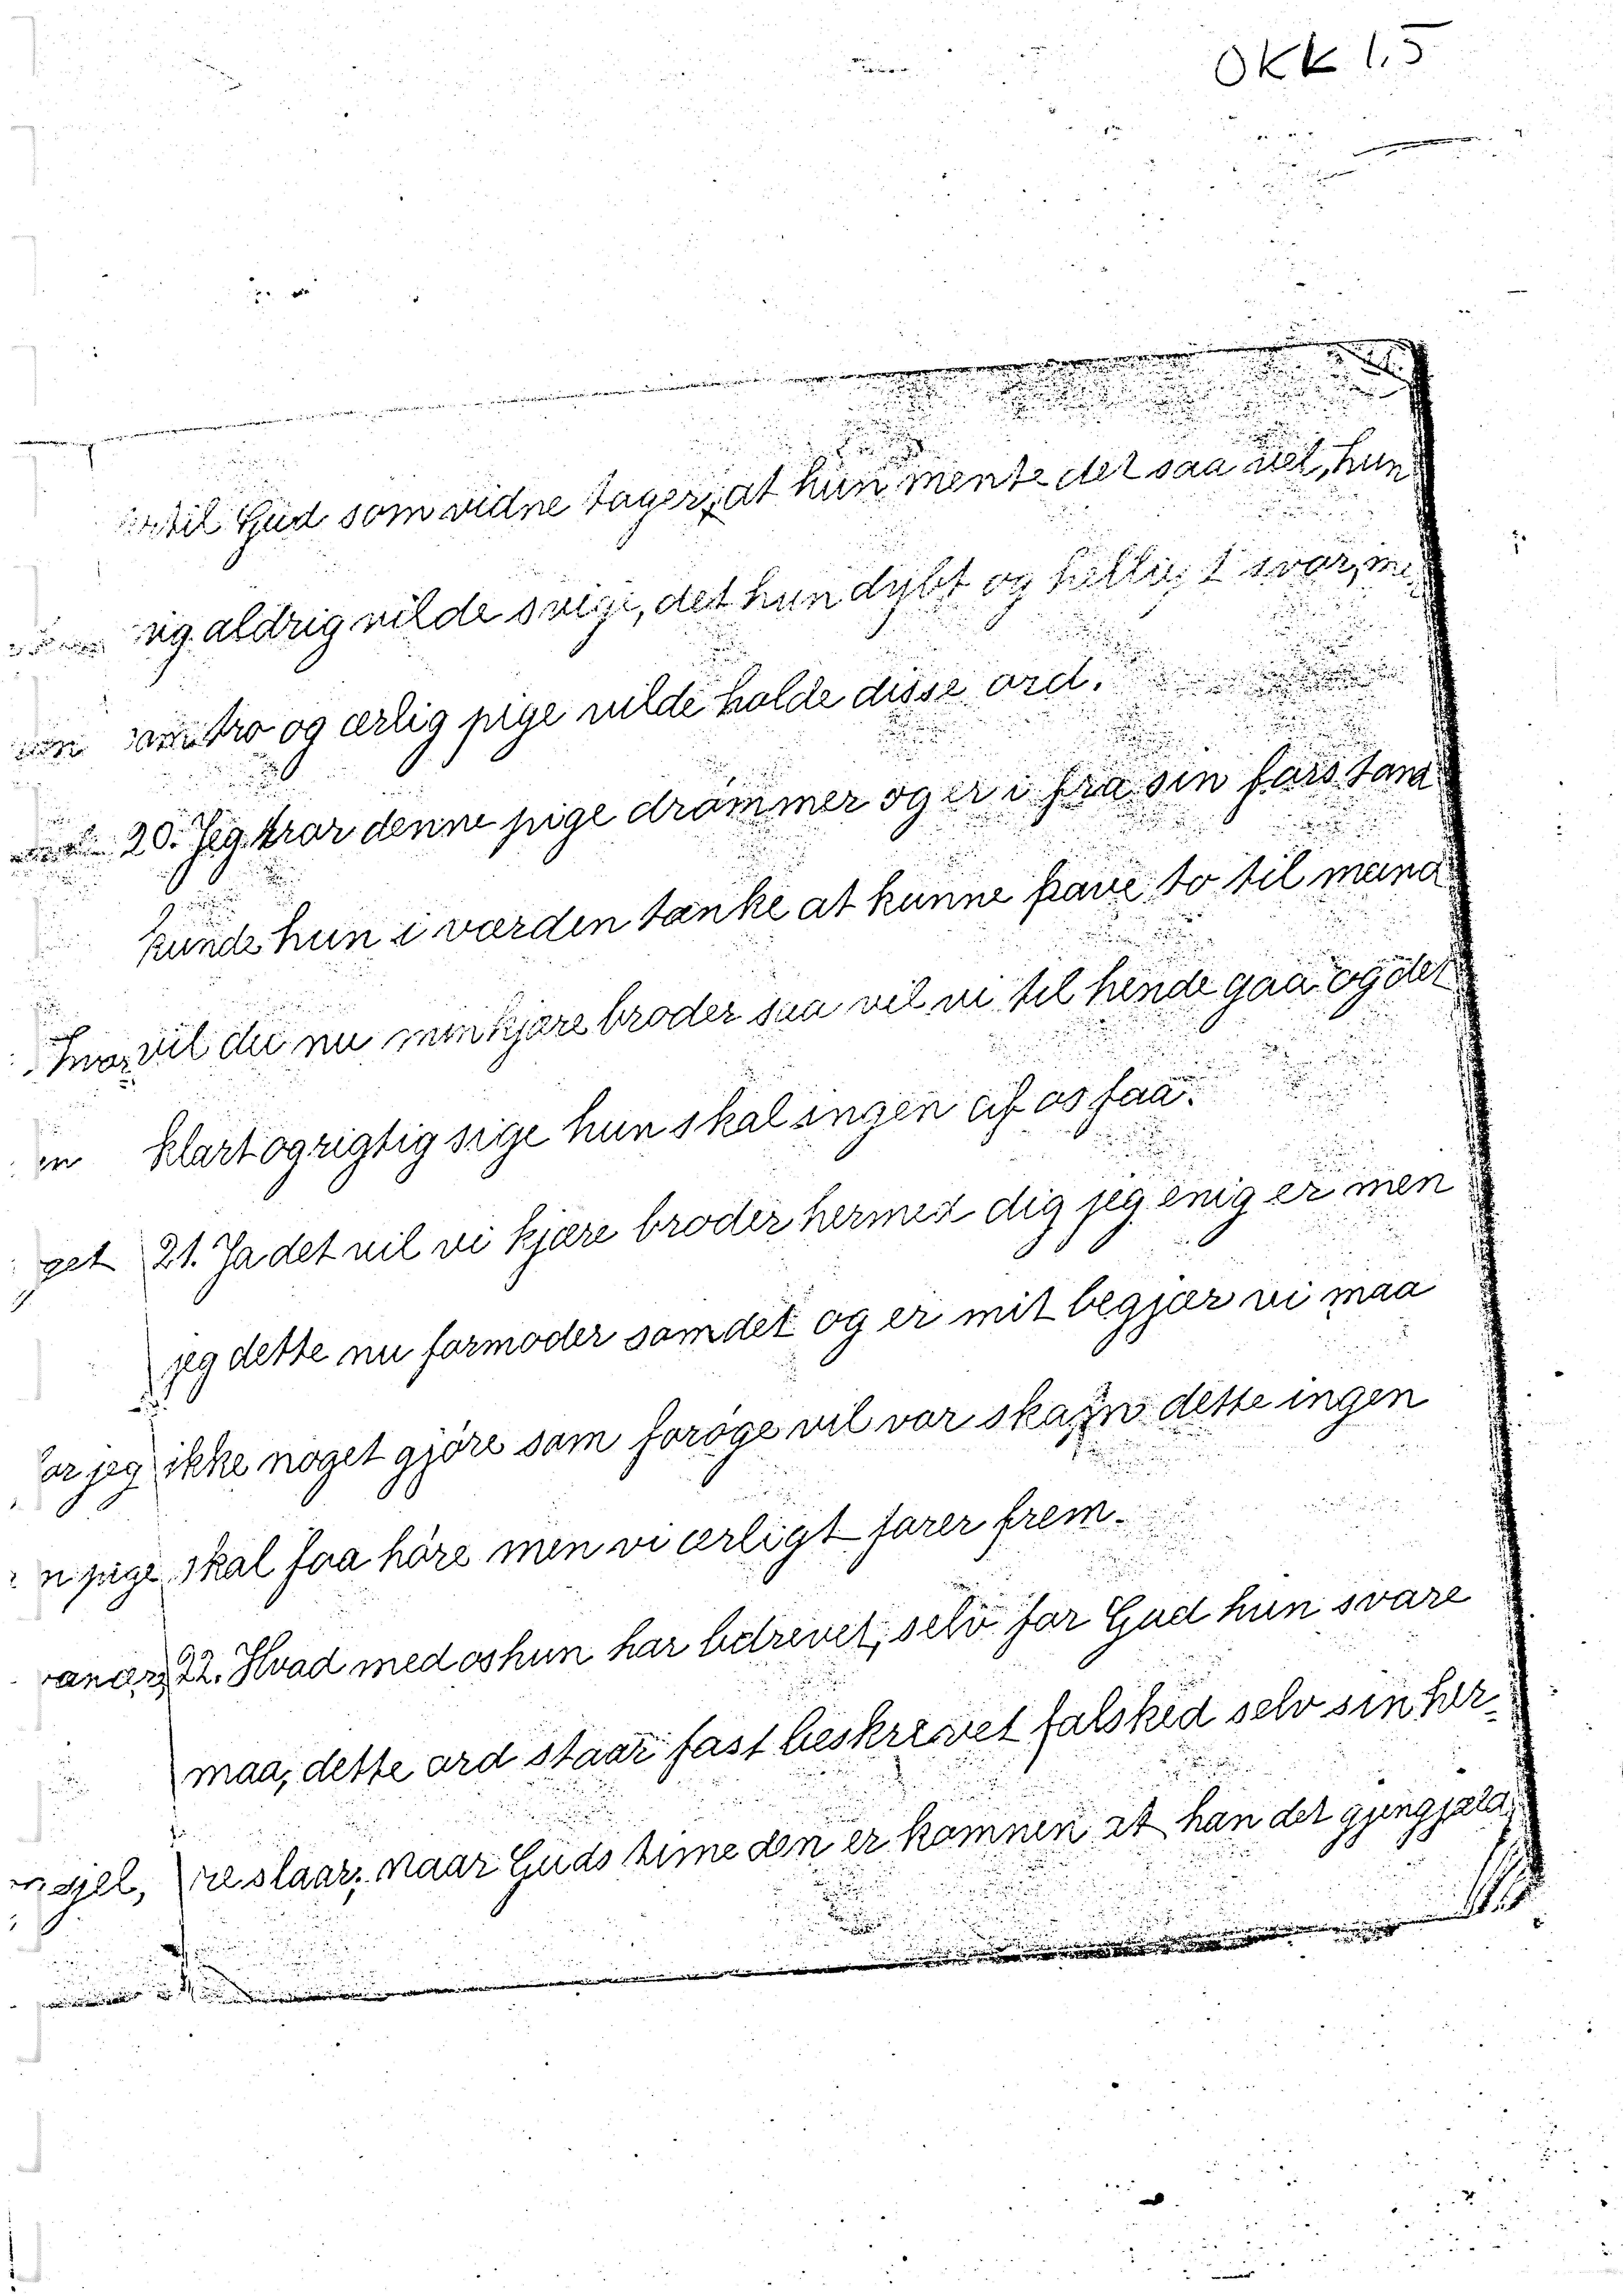 OKK 1,5
til Gud som vidne tager, at hun mente det saa vel, hun
aldrig vilde svige, det hun dybt og helligt svor,
tro og ærlig pige vilde holde disse ord.
20. Jeg tror denne pige drømmer og er i fra sin forstand
kunde hun i værden tænke at kunne have to til mand
vil du nu min kjære broder saa vel vi til hende gaa og det
en klart og rigtig sige hun skal ingen af os faa.
get 21. Ja det vil vi kjære broder hermed dig jeg enig er men
jeg dette nu formoder som det og er mit begjær vi maa
or jeg ikke noget gjöre som foröge vil vor skam dette ingen
n pige skal faa höre men vi ærligt farer frem.
22. Hvad med os hun har bedrevet, selv for Gud hun svare
maa, dette ord staar fast beskrevet falsked selv sin her-
sjel, re slaar, naar Guds time den er kommen at han det gjengjæld